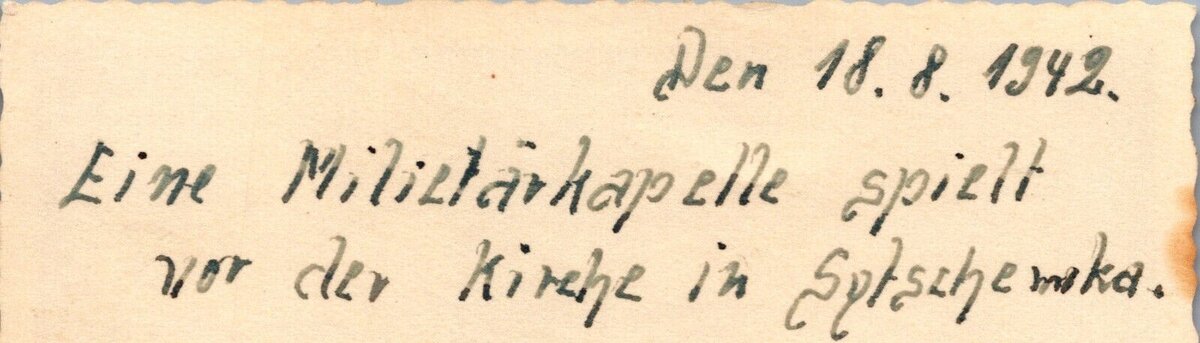 Den 18. 8. 1942.
Eine Milietärkapelle spielt
vor der Kirche in Sytschewka.